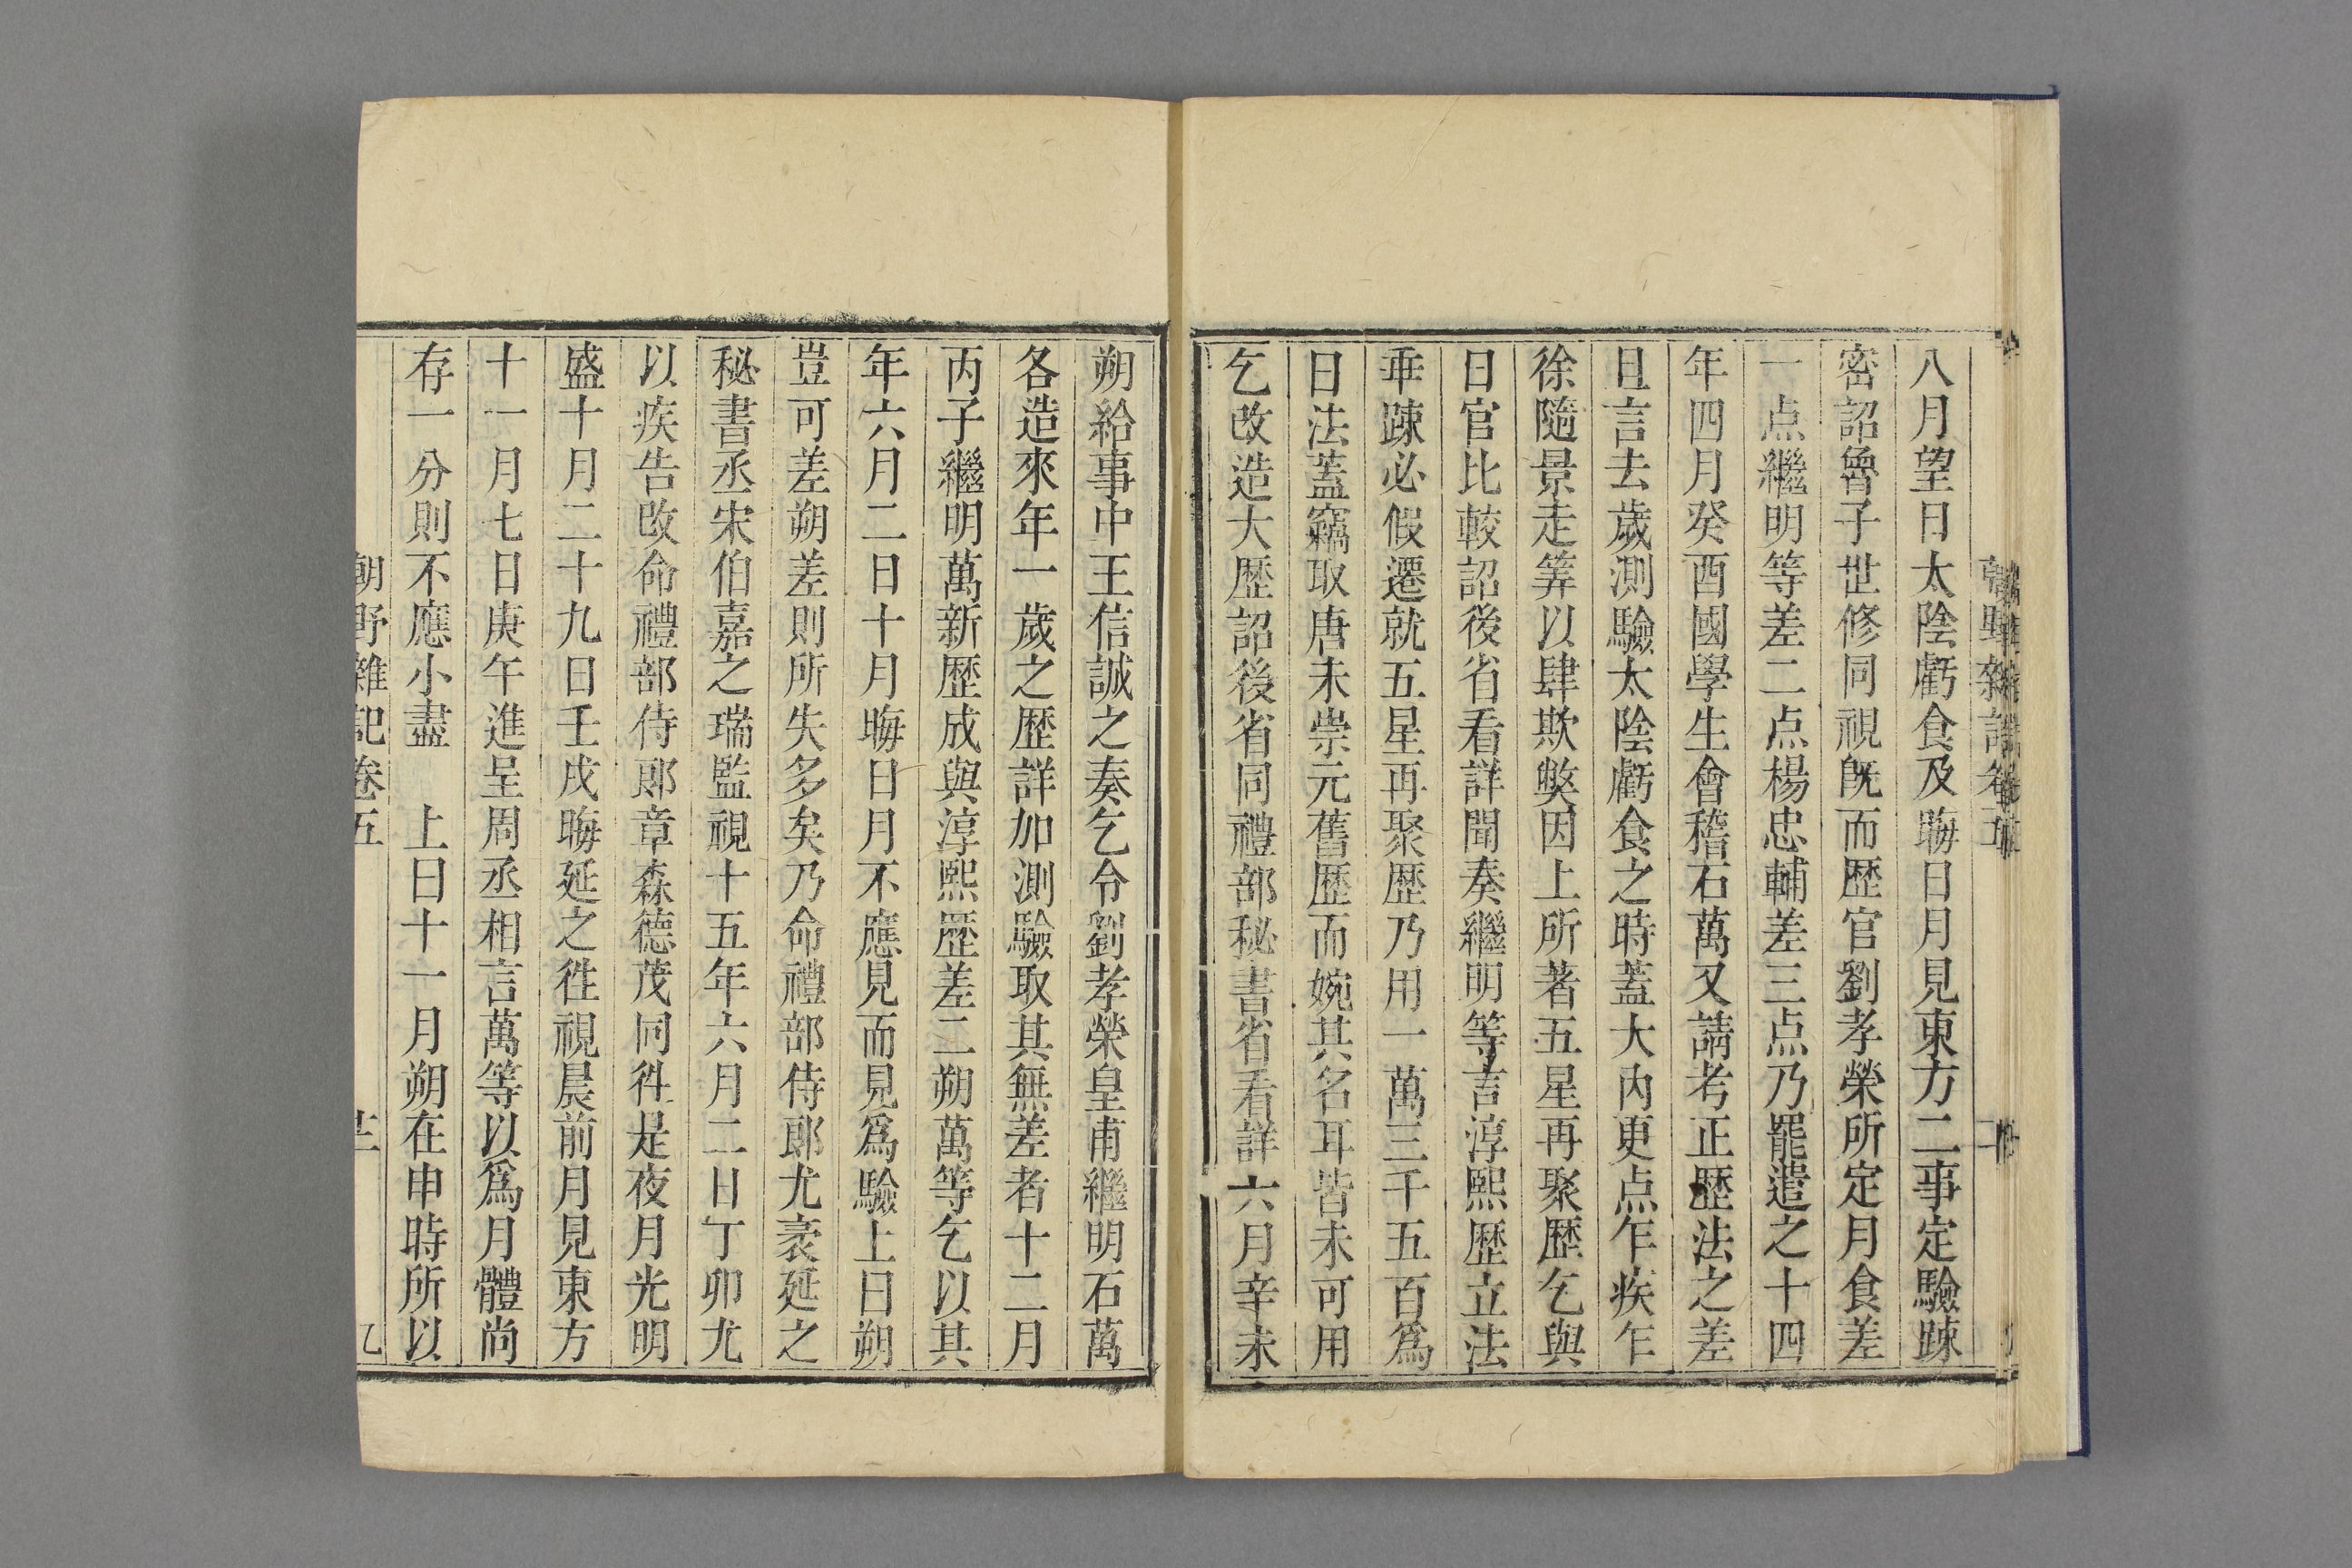 八月望日太陰虧食及晦日月見東方二事定驗踈
密詔魯子世修同視旣而歷官劉孝榮所定月食差
一点繼明等差二点楊忠輔差三点乃罷遣之十四
年四月癸酉國學生會稽石萬又請考正歷法之差
且言去歲測驗太陰虧食之時蓋大内更点乍疾乍
徐隨景走筭以肆欺獘因上所著五星再聚歷乞與
日官比較詔後省看詳聞奏繼明等言淳熙歷立法
乖踈必假遷就五星再聚歷乃用一萬三千五百爲
日法蓋竊取唐末崇元舊歷而婉其名耳皆未可用
乞改造大歷詔後省同禮部秘書省看詳六月辛未
朔給事中王信誠之奏乞令劉孝榮皇甫繼明石萬
各造來年一歲之歷詳加測驗取其無差者十二月
丙子繼明萬新歷成與淳熙歷差二朔萬等乞以其
年六月二日十月晦日月不應見而見爲驗上曰朔
豈可差朔差則所失多矣乃命禮部侍郎尤袤延之
秘書丞宋伯嘉之瑞監視十五年六月二日丁卯尤
以疾告改命禮部侍郎章森德茂同徃是夜月光明
盛十月二十九日壬戌晦延之徃視晨前月見東方
十一月七日庚午進呈周丞相言萬等以爲月體尚
存一分則不應小盡　上曰十一月朔在申時所以
朝野雜記卷五
九